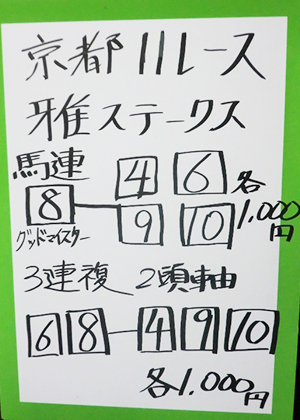 京都11レース
雅ステークス
馬連 4 6 各
8 — 9 10 1,000円
グッドマイスター
3連複 2頭軸
6 8 — 4 9 10
各1,000円